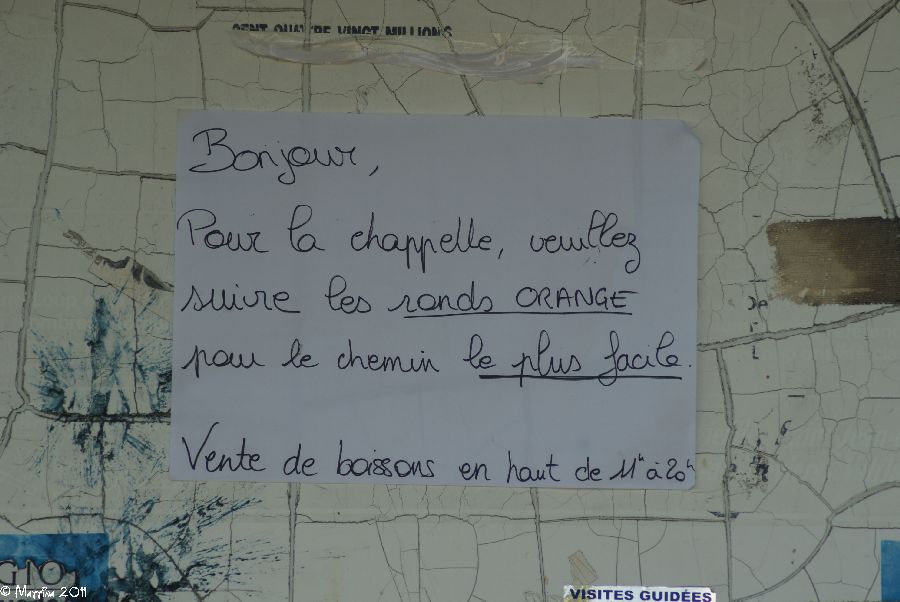 CENT QUATRE VINGT MILLIONS
Bonjour,
Pour la chappelle, veuillez
suivre les ronds ORANGE
pour le chemin le plus facile.
Vente de boissons en haut de 11h à 20h
GIO
VISITES GUIDÉES
© Marrina 2011